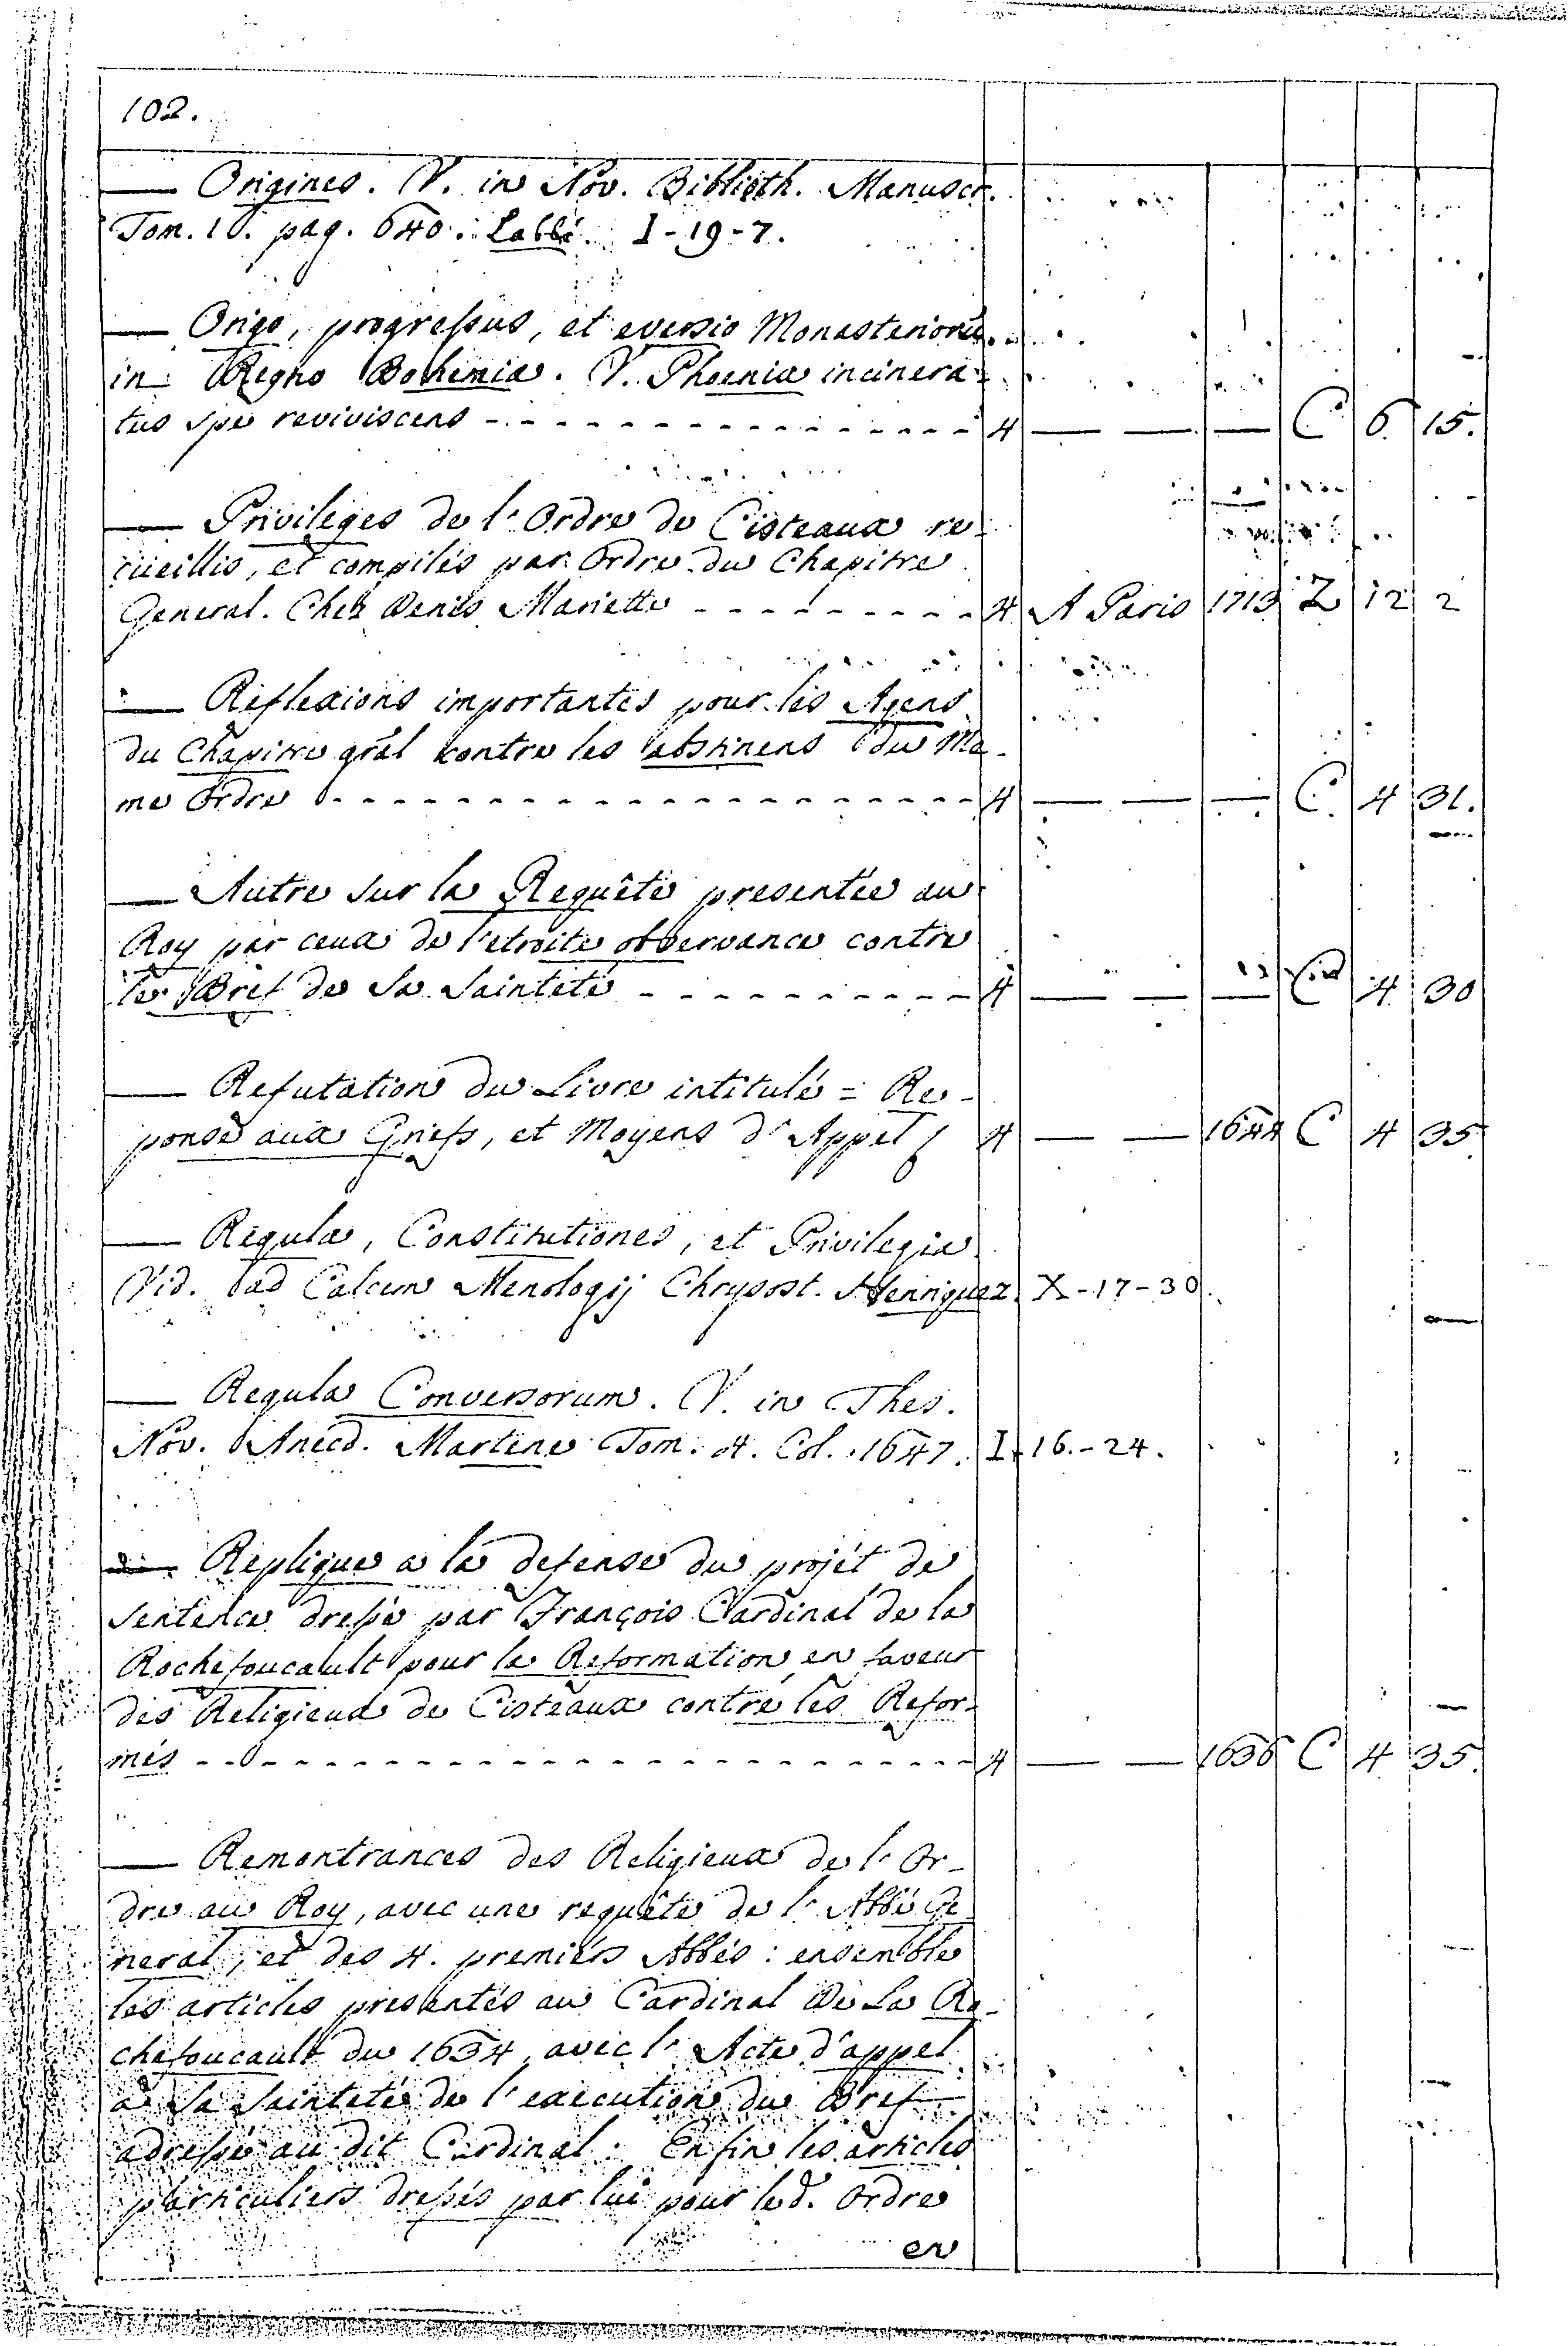 102.
— Origines. V. in Nov. Biblioth. Manuscr.
Tom. 10. pag. 640. Labbé. I-19-7.
— Origo, progressus, et eversio Monasteriorũ
in Regno Bohemiæ. V. Phoenix incinera-
tus spe reviviscens - - - 4 — — — C 6. 15.
— Privileges de l'Ordre de Cisteaux re-
cüeillis, et compilés par Ordre du Chapitre
General. Chez Denis Mariette - - - 4 A Paris 1713 Z 12 2
— Reflexions importantes pour les Agens
du Chapitre grãl contre les abstinens du Me-
me Ordre - - - 4 — — — C. 4 31.
— Autre sur la Requête presentée au
Roy par ceux de l'etroite observance contre
le Bref de Sa Sainteté - - - 4 — — — C 4 30
— Refutation du Livre intitulé = Re-
ponse aux Griefs, et Moyens d'Appel 4 — — 1644 C 4 35
— Regula, Constitutiones, et Privilegia
Vid. ad Calcem Menologij Chrysost. Henriquez X-17-30.
— Regula Conversorum. V. in Thes.
Nov. Anecd. Martene Tom. 4. Col. 1647. I-16.-24.
— Replique a la defense du projét de
Sentence dressé par François Cardinal de la
Rochefoucault pour la Reformation en faveur
des Religieux de Cisteaux contre les Refor-
més - - - 4 — — 1636 C 4 35.
— Remontrances des Religieux de l'Or-
dre au Roy, avec une requête de l'Abbé Ge-
neral, et des 4. premiers Abbés: ensemble
les articles presentés au Cardinal De La Ro-
chefoucault du 1634 avec l'Acte d'appel
a Sa Sainteté de l'execution du Bref
adressé au dit Cardinal: Enfin les articles
particuliers dressés par lui pour led. Ordre
en